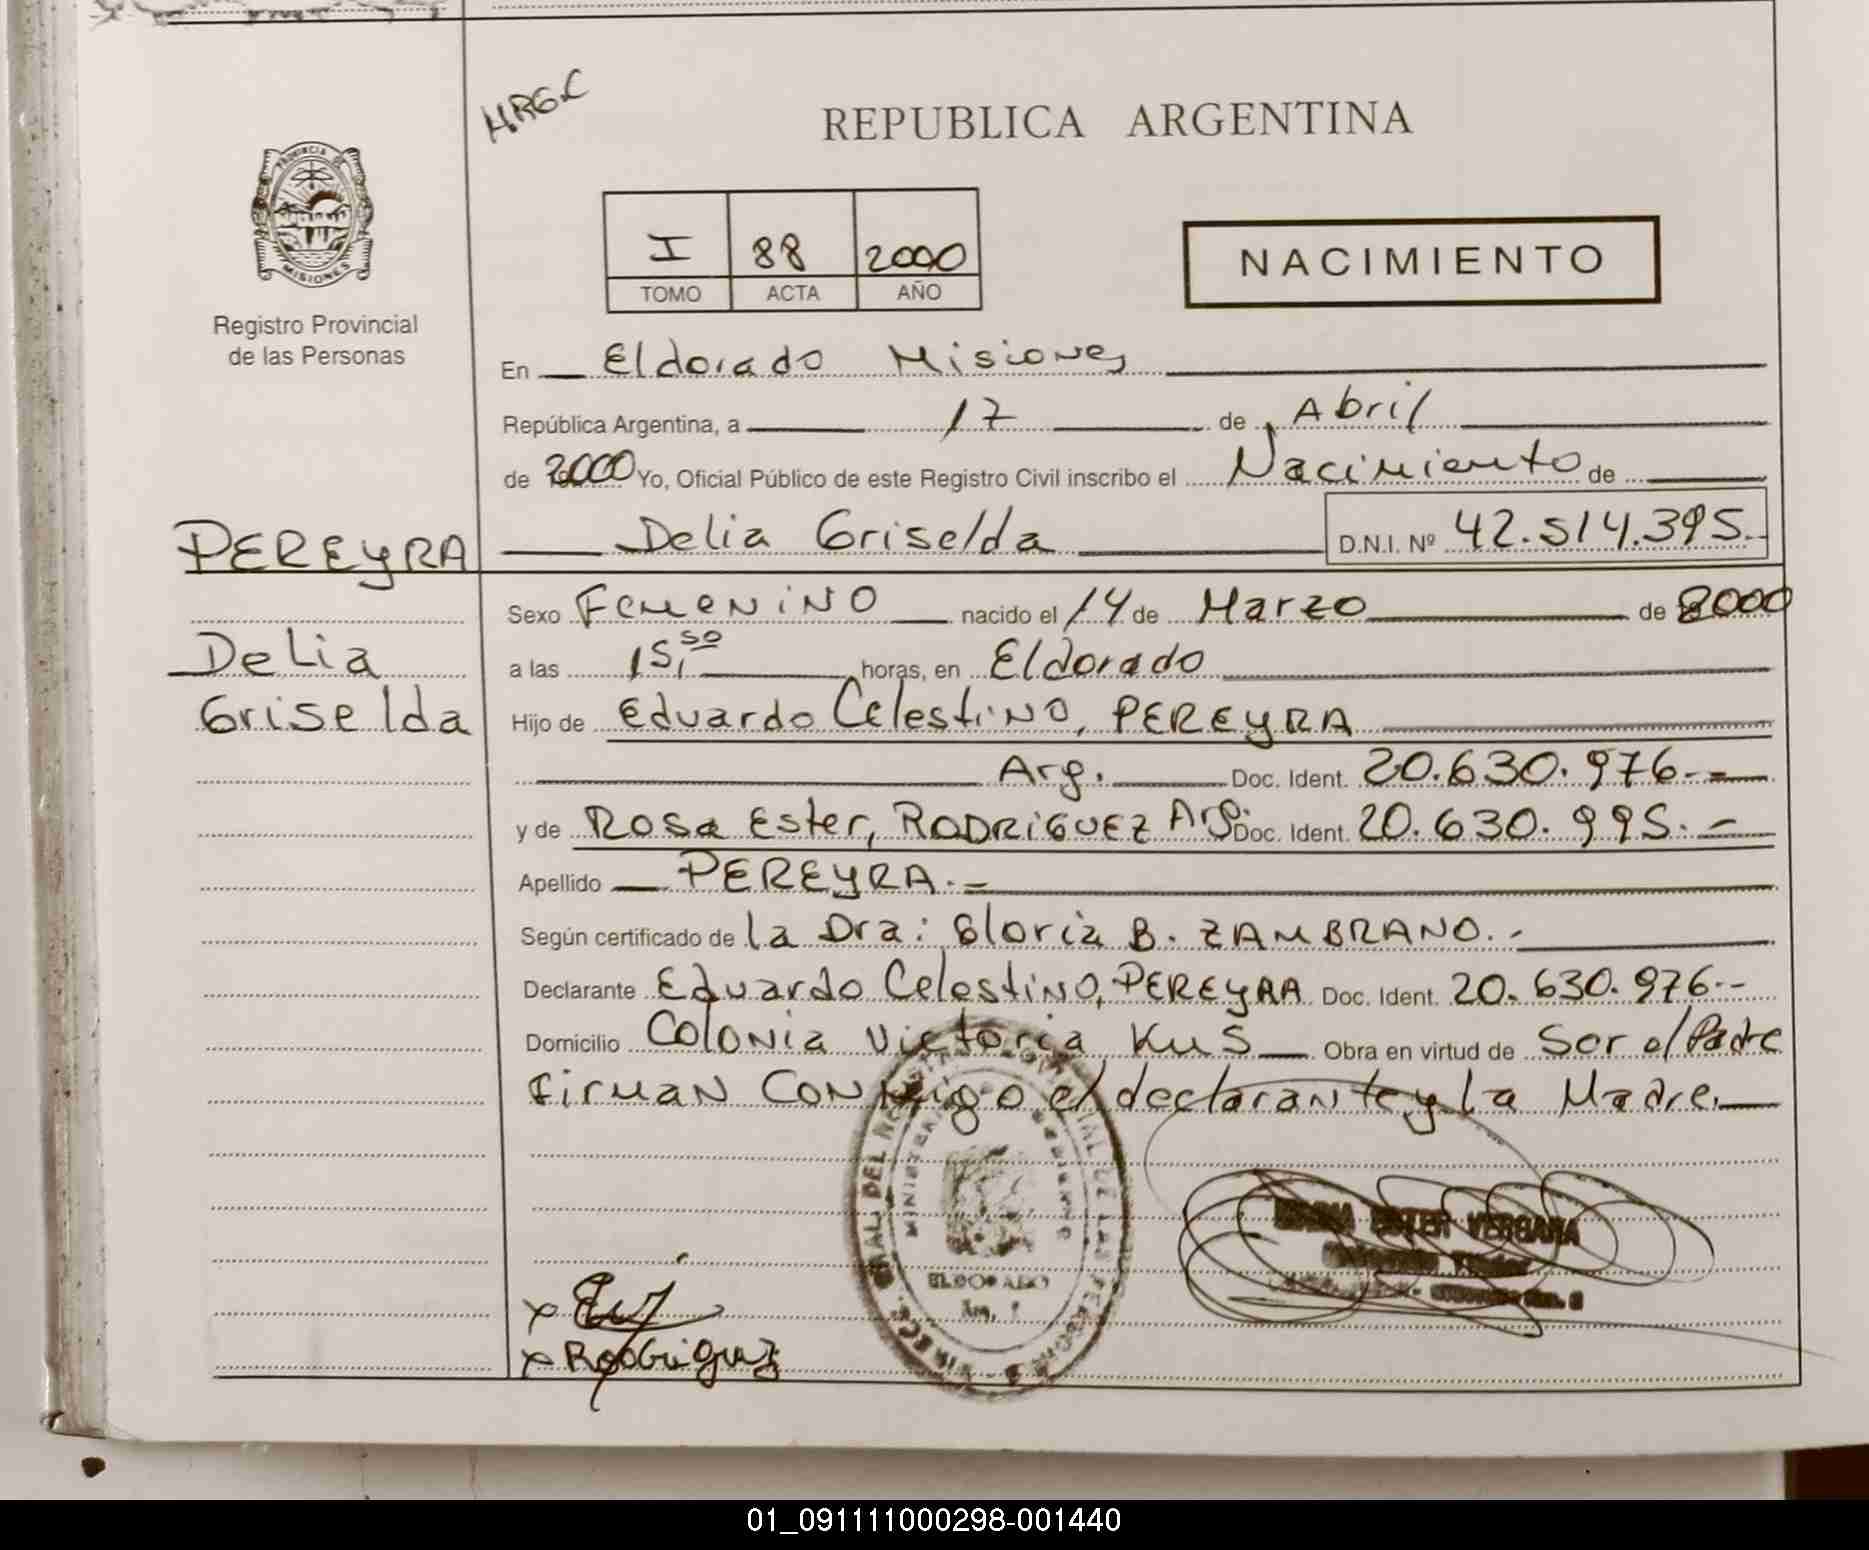 HRG.C
REPUBLICA ARGENTINA
PROVINCIA DE
MISIONES
Registro Provincial
de las Personas
I 88 2000
TOMO ACTA AÑO
NACIMIENTO
En Eldorado Misiones
República Argentina, a 17 de Abril
de 2000 Yo, Oficial Público de este Registro Civil inscribo el Nacimiento de
PEREYRA Delia Griselda D.N.I. Nº 42.514.395.-
Sexo Femenino nacido el 14 de Marzo de 2000
Delia a las 15,50 horas, en Eldorado
Griselda Hijo de Eduardo Celestino, PEREYRA
Arg. Doc. Ident. 20.630.976.-
y de Rosa Ester, RODRIGUEZ Arg. Doc. Ident. 20.630.995.-
Apellido PEREYRA.-
Según certificado de la Dra: Gloria B. ZAMBRANO.-
Declarante Eduardo Celestino, PEREYRA Doc. Ident. 20.630.976.-
Domicilio Colonia Victoria Kus Obra en virtud de Ser el Padre
Firman Conmigo el declarante y la Madre.
ELDORADO
ESTER VERGARA
x
x Rodriguez
01_091111000298-001440